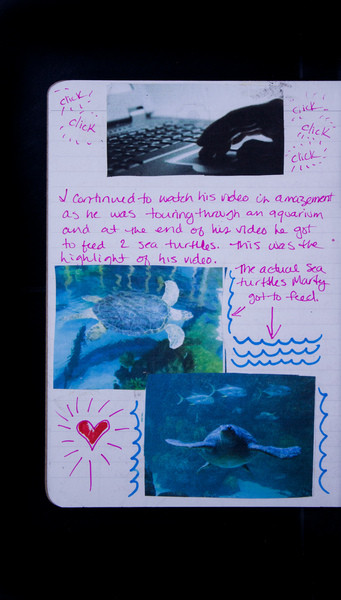 click
click
click
click
click
I continued to watch his video in amazement
as he was touring through an aquarium
and at the end of his video he got
to feed 2 sea turtles. This was the
highlight of his video.
The actual sea
turtles Marty
got to feed.